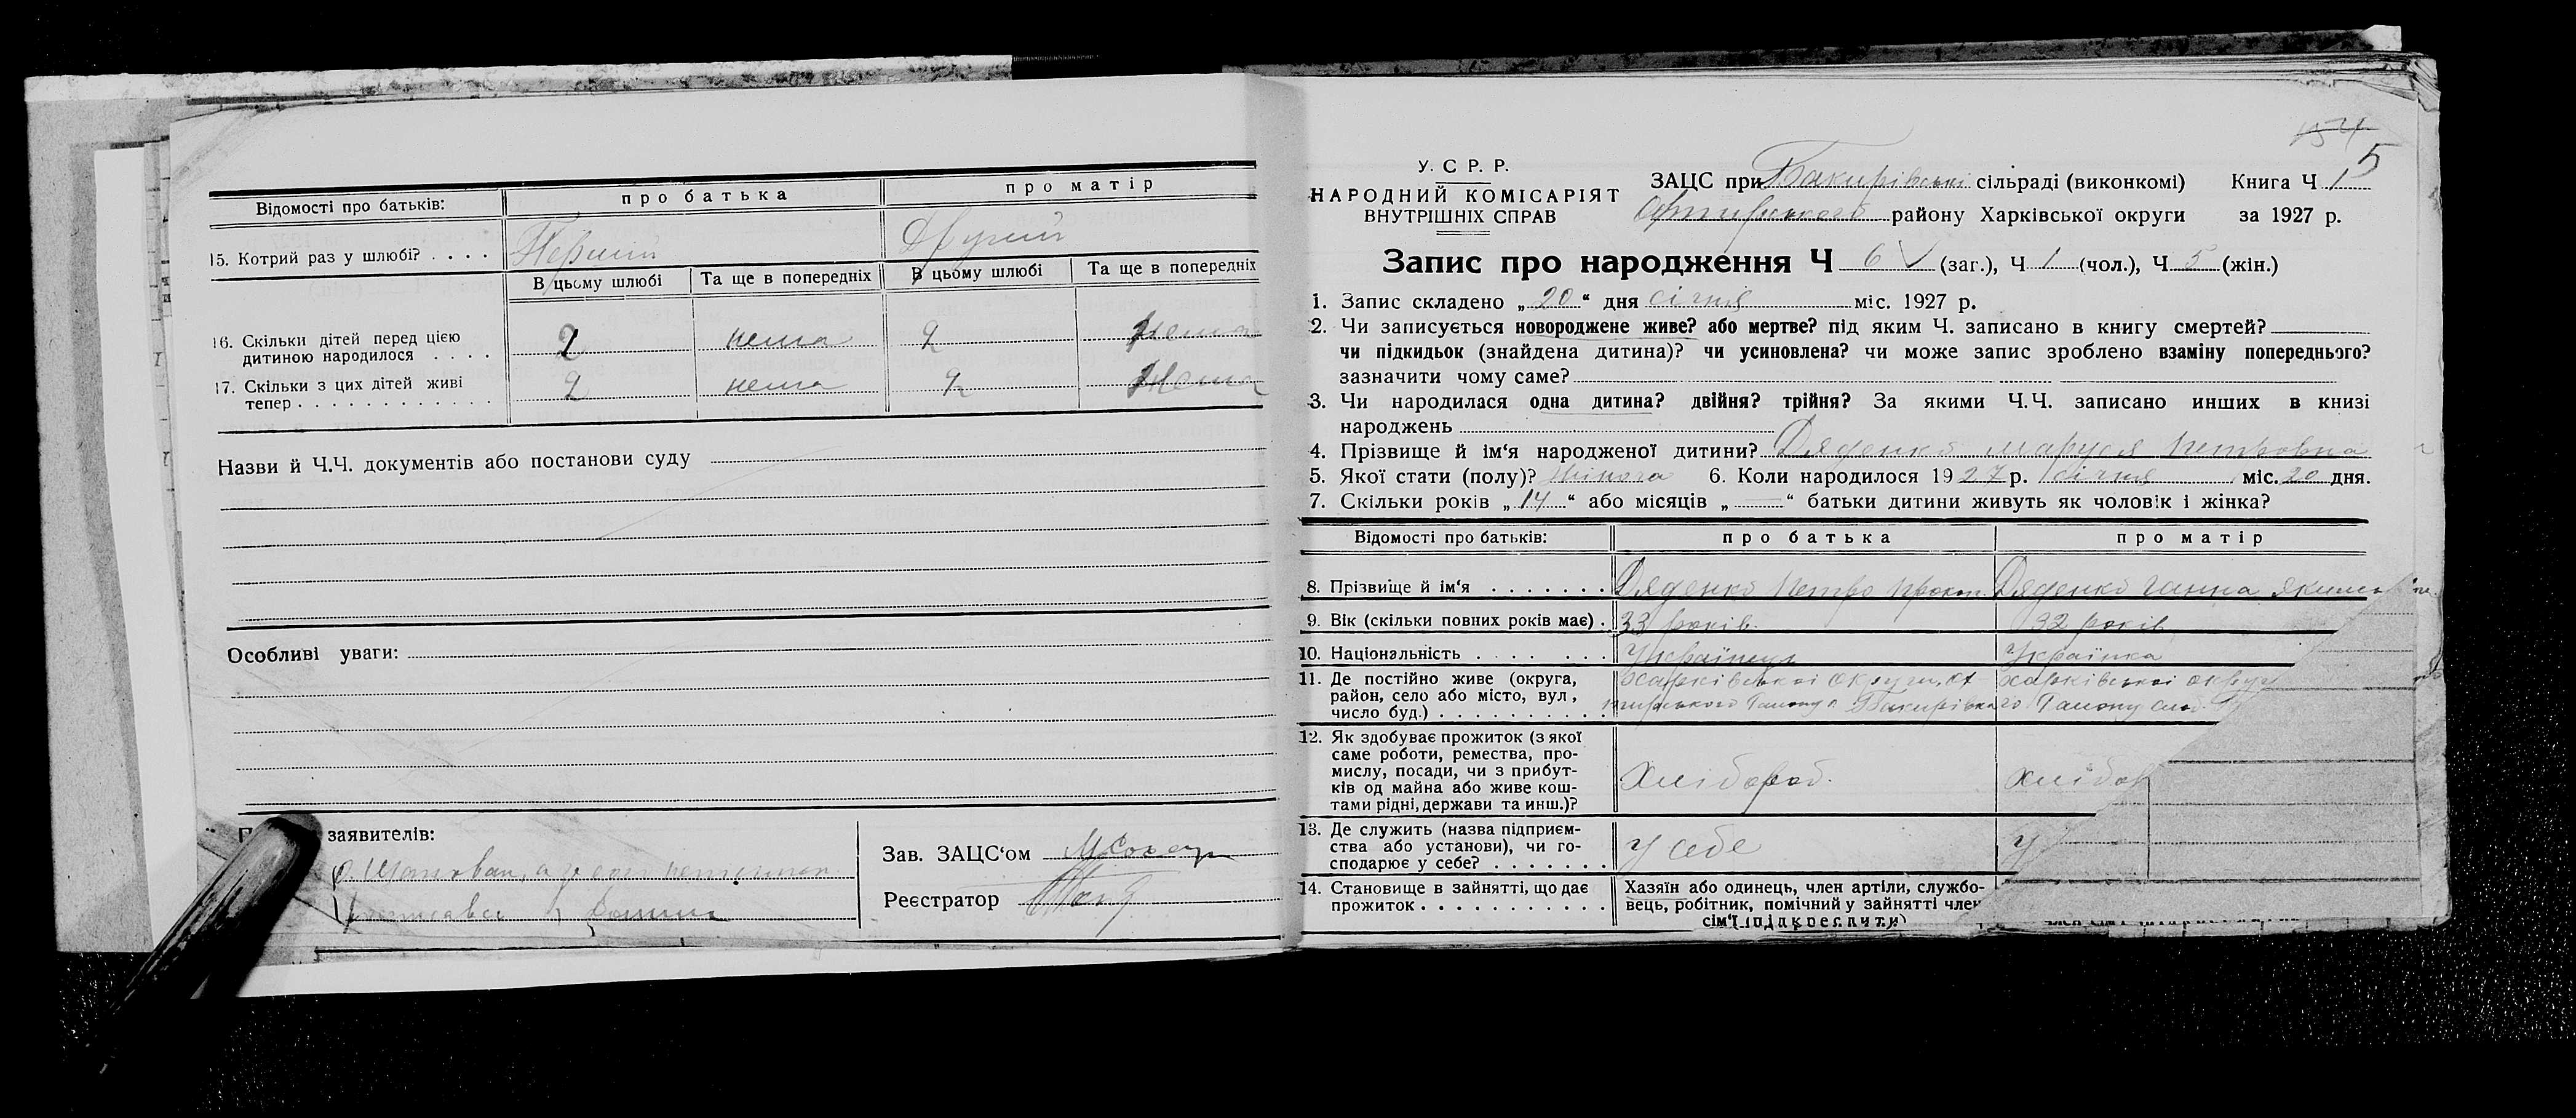 Відомості про батьків: про батька про матір
15. Котрий раз у шлюбі? . . . . Перший Другий
В цьому шлюбі Та ще в попередніх В цьому шлюбі Та ще в попередніх
16. Скільки дітей перед цією
дитиною народилося . . . . 2 нема 2 нема
17. Скільки з цих дітей живі
тепер . . . . . . . . . . . . 2 нема 2 нема
Назви й Ч.Ч. документів або постанови суду
Особливі уваги:
заявителів:
Зав. ЗАЦС‘ом
Реєстратор
154
5
У. С. Р. Р.
НАРОДНИЙ КОМІСАРІЯТ
ВНУТРІШНІХ СПРАВ
ЗАЦС при Бакирівські сільраді (виконкомі) Книга Ч 1
Охтирського району Харківської округи за 1927 р.
Запис про народження Ч 6 (заг.), Ч 1 (чол.), Ч 5 (жін.)
1. Запис складено „20“ дня січня міс. 1927 р.
2. Чи записується новороджене живе? або мертве? під яким Ч. записано в книгу смертей?
чи підкидьок (знайдена дитина)? чи усиновлена? чи може запис зроблено взаміну попереднього?
зазначити чому саме?
3. Чи народилася одна дитина? двійня? трійня? За якими Ч.Ч. записано инших в книзі
народжень
4. Прізвище й ім‘я народженої дитини? Дяденко маруся петровна
5. Якої стати (полу)? жіноча 6. Коли народилося 1927 р. січня міс. 20 дня.
7. Скільки років „14“ або місяців „—“ батьки дитини живуть як чоловік і жінка?
Відомості про батьків: про батька про матір
8. Прізвище й ім‘я . . . . . . . Дяденко петро прокоп. Дяденко ганна
9. Вік (скільки повних років має) . 33 років. 32 років
10. Національність . . . . . . . Українець Українка
11. Де постійно живе (округа, Харківської округи, Ох Харківської округ
район, село або місто, вул., тирського Району с. Бакирівка го Району
число буд.) . . . . . . . . . .
12. Як здобуває прожиток (з якої
саме роботи, ремества, про-
мислу, посади, чи з прибут-
ків од майна або живе кош-
тами рідні, держави та инш.)? Хлібороб. хлібор
13. Де служить (назва підприєм-
ства або установи), чи го-
сподарює у себе? . . . . . . . у себе у
14. Становище в зайнятті, що дає
прожиток . . . . . . . . . . .
Хазяїн або одинець, член артіли, службо-
вець, робітник, помічний у зайнятті член
сім‘ї (підкреслити)